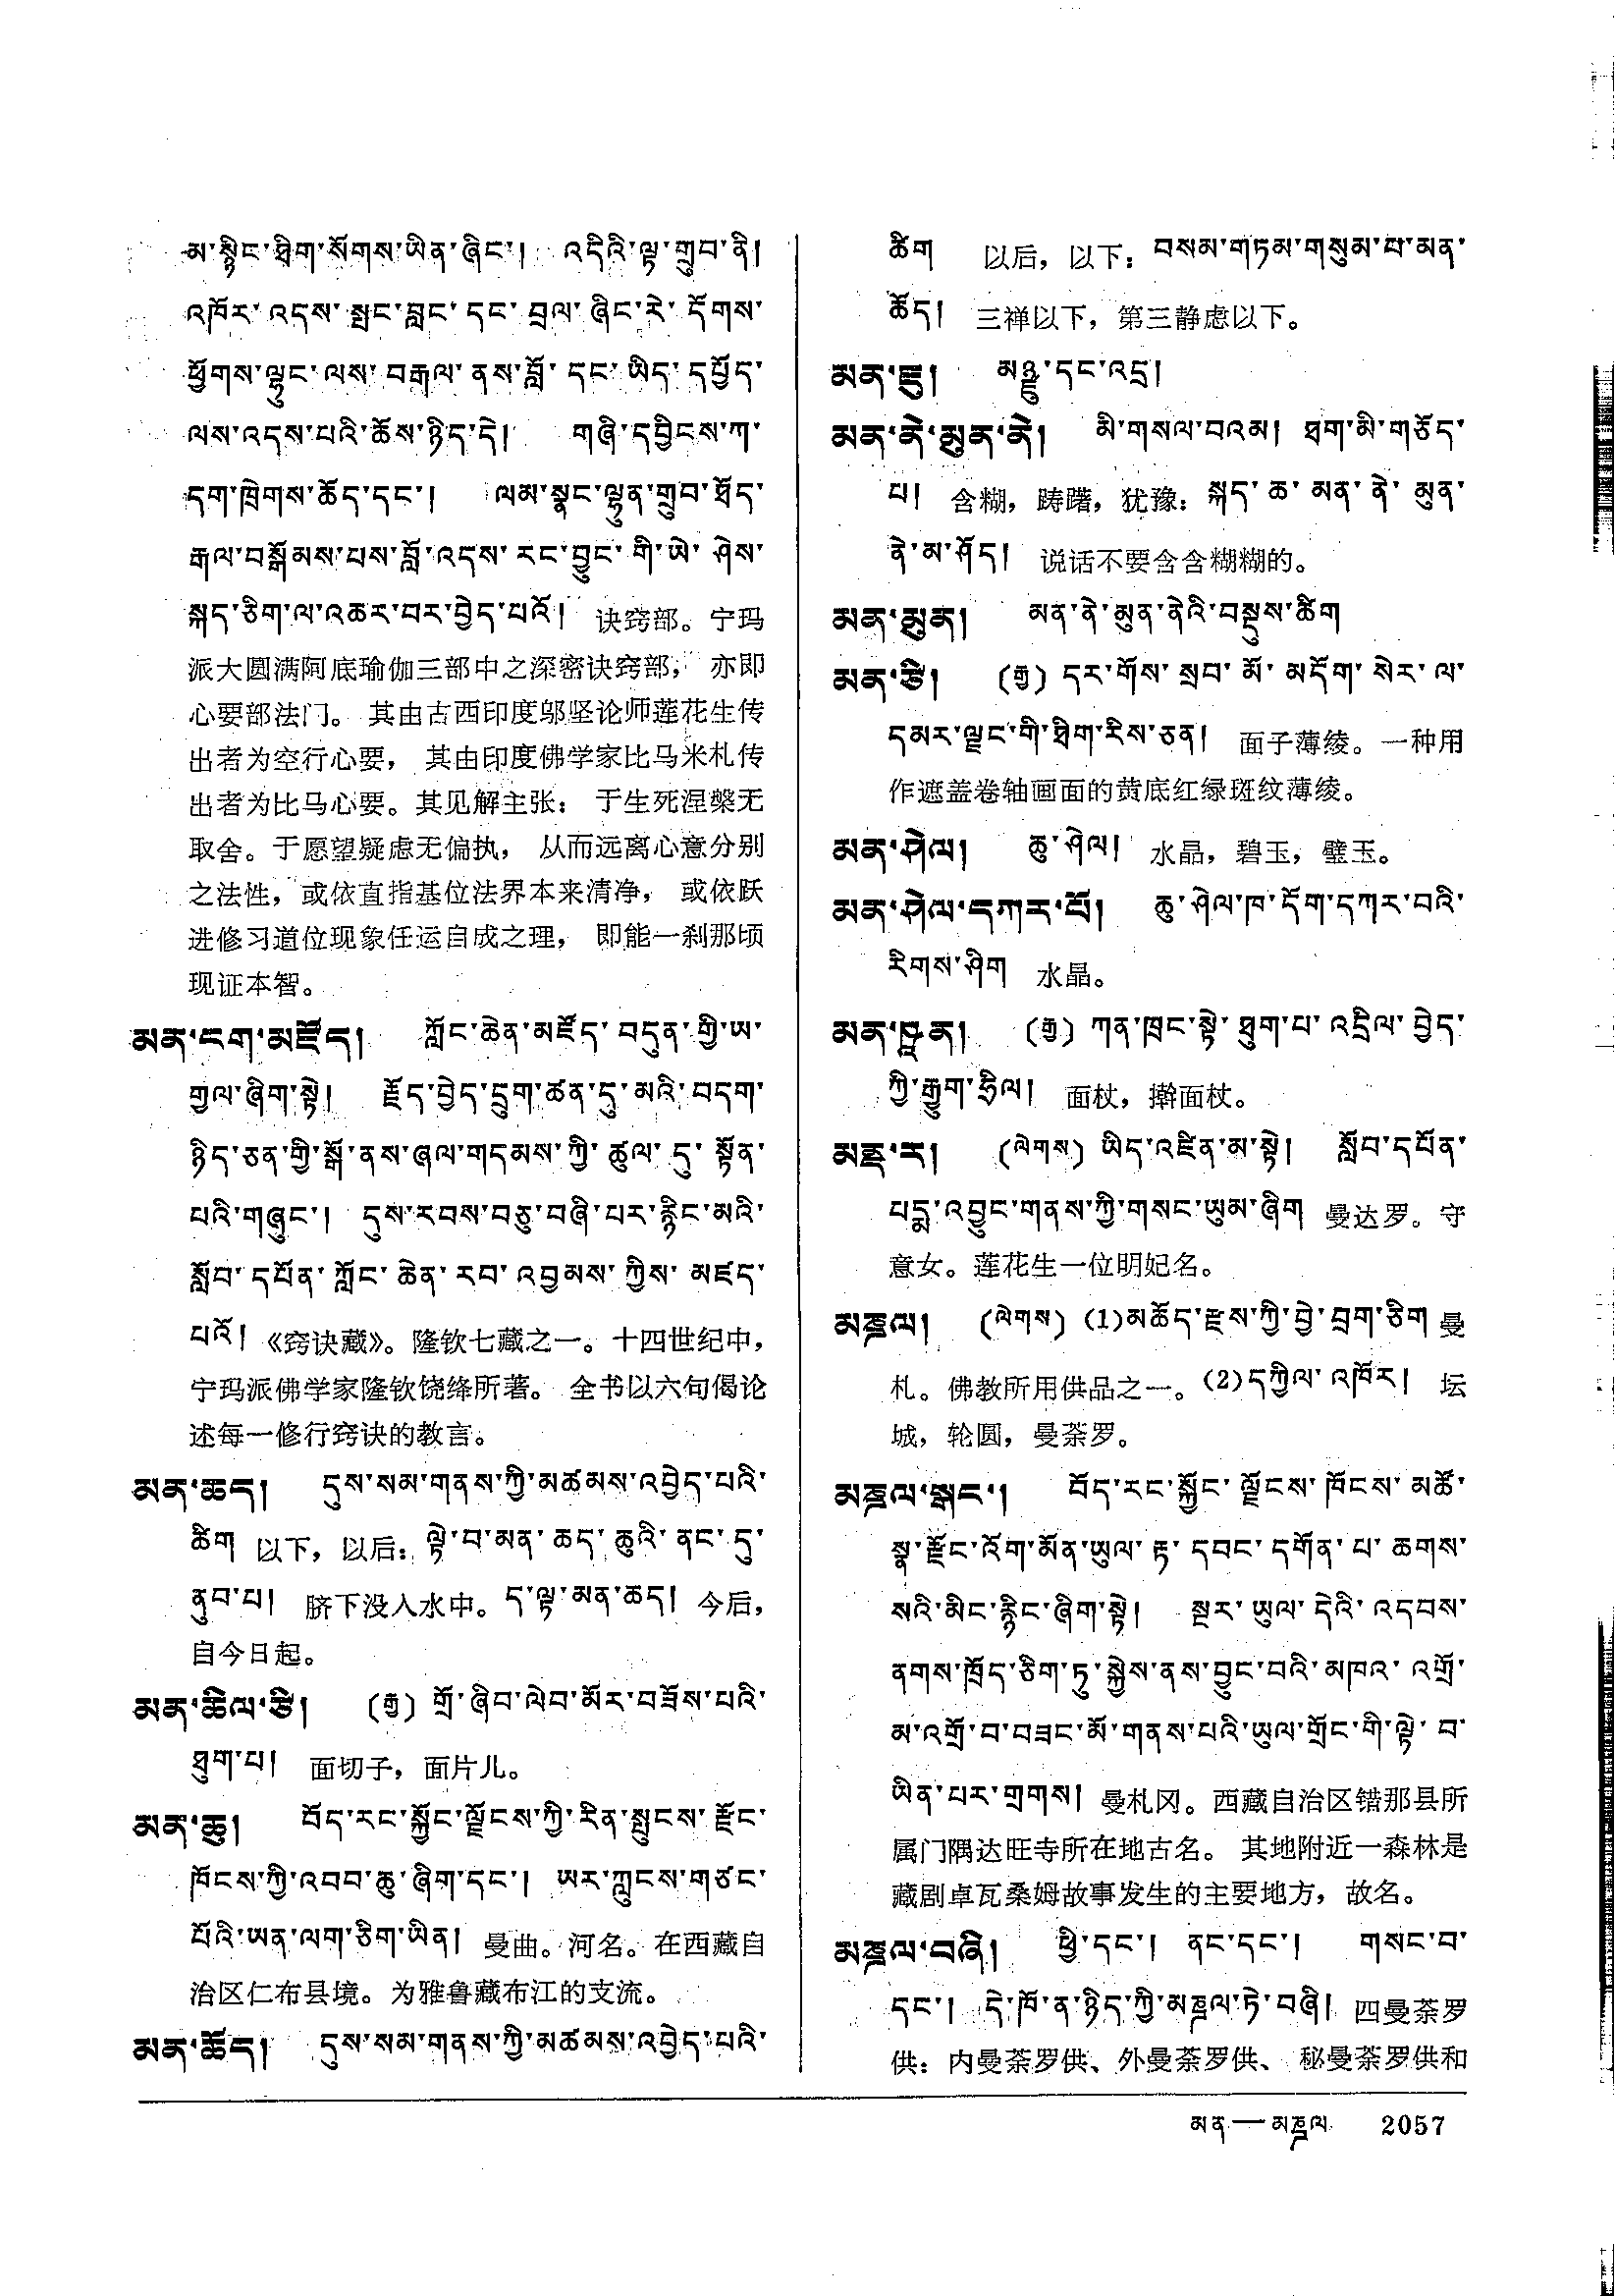 མ་སྙིང་ཐིག་སོགས་ཡིན་ཞིང་། འདིའི་ལྟ་གྲུབ་ནི།
འཁོར་འདས་སྤང་བླང་དང་བྲལ་ཞིང་རེ་དོགས་
ཕྱོགས་ལྷུང་ལས་བརྒལ་ནས་བློ་དང་ཡིད་དཔྱོད་
ལས་འདས་པའི་ཆོས་ཉིད་དེ། གཞི་དབྱིངས་ཀ་
དག་ཁྲེགས་ཆོད་དང་། ལམ་སྣང་ལྷུན་གྲུབ་ཐོད་
རྒལ་བསྒོམས་པས་བློ་འདས་རང་བྱུང་གི་ཡེ་ཤེས་
སྐད་ཅིག་ལ་འཆར་བར་བྱེད་པའོ། 诀窍部。宁玛
派大圆满阿底瑜伽三部中之深密诀窍部，亦即
心要部法门。其由古西印度邬坚论师莲花生传
出者为空行心要，其由印度佛学家比马米札传
出者为比马心要。其见解主张：于生死涅槃无
取舍。于愿望疑虑无偏执，从而远离心意分别
之法性，或依直指基位法界本来清净，或依跃
进修习道位现象任运自成之理，即能一刹那顷
现证本智。
མན་ངག་མཛོད། ཀློང་ཆེན་མཛོད་བདུན་གྱི་ཡ་
གྱལ་ཞིག་སྟེ། རྗོད་བྱེད་དྲུག་ཚན་དུ་མའི་བདག་
ཉིད་ཅན་གྱི་སྒོ་ནས་ཞལ་གདམས་ཀྱི་ཚུལ་དུ་སྟོན་
པའི་གཞུང་། དུས་རབས་བཅུ་བཞི་པར་རྙིང་མའི་
སློབ་དཔོན་ཀློང་ཆེན་རབ་འབྱམས་ཀྱིས་མཛད་
པའོ། 《窍诀藏》。隆钦七藏之一。十四世纪中，
宁玛派佛学家隆钦饶绛所著。全书以六句偈论
述每一修行窍诀的教言。
མན་ཆད། དུས་སམ་གནས་ཀྱི་མཚམས་འབྱེད་པའི་
ཚིག 以下，以后：ལྟེ་བ་མན་ཆད་ཆུའི་ནང་དུ་
ནུབ་པ། 脐下没入水中。ད་ལྟ་མན་ཆད། 今后，
自今日起。
མན་ཆེལ་ཙི། (རྒྱ) གྲོ་ཞིབ་ལེབ་མོར་བཟོས་པའི་
ཐུག་པ། 面切子，面片儿。
མན་ཆུ། བོད་རང་སྐྱོང་ལྗོངས་ཀྱི་རིན་སྤུངས་རྫོང་
ཁོངས་ཀྱི་འབབ་ཆུ་ཞིག་དང་། ཡར་ཀླུངས་གཙང་
པོའི་ཡན་ལག་ཅིག་ཡིན། 曼曲。河名。在西藏自
治区仁布县境。为雅鲁藏布江的支流。
མན་ཆོད། དུས་སམ་གནས་ཀྱི་མཚམས་འབྱེད་པའི་
ཚིག 以后，以下：བསམ་གཏམ་གསུམ་པ་མན་
ཆོད། 三禅以下，第三静虑以下。
མན་ཇུ། མཉྫུ་དང་འདྲ།
མན་ནེ་མུན་ནེ། མི་གསལ་བའམ། ཐག་མི་གཅོད་
པ། 含糊，踌躇，犹豫：སྐད་ཆ་མན་ནེ་མུན་
ནེ་མ་ཤོད། 说话不要含含糊糊的。
མན་མུན། མན་ནེ་མུན་ནེའི་བསྡུས་ཚིག
མན་ཙི། (རྒྱ) དར་གོས་སྲབ་མོ་མདོག་སེར་ལ་
དམར་ལྗང་གི་ཐིག་རིས་ཅན། 面子薄绫。一种用
作遮盖卷轴画面的黄底红绿斑纹薄绫。
མན་ཤེལ། ཆུ་ཤེལ། 水晶，碧玉，璧玉。
མན་ཤེལ་དཀར་པོ། ཆུ་ཤེལ་ཁ་དོག་དཀར་བའི་
རིགས་ཤིག 水晶。
(རྒྱ) ཀན་ཁྲང་སྟེ་ཐུག་པ་འདྲིལ་བྱེད་
ཀྱི་རྒྱུག་ཧྲིལ། 面杖，擀面杖。
མནྡ་ར། (ལེགས) ཡིད་འཛིན་མ་སྟེ། སློབ་དཔོན་
པདྨ་འབྱུང་གནས་ཀྱི་གསང་ཡུམ་ཞིག 曼达罗。守
意女。莲花生一位明妃名。
མཎྜལ། (ལེགས) (1)མཆོད་རྫས་ཀྱི་བྱེ་བྲག་ཅིག 曼
札。佛教所用供品之一。(2)དཀྱིལ་འཁོར། 坛
城，轮圆，曼荼罗。
མཎྜལ་སྒང་། བོད་རང་སྐྱོང་ལྗོངས་ཁོངས་མཚོ་
སྣ་རྫོང་འོག་མོན་ཡུལ་རྟ་དབང་དགོན་པ་ཆགས་
སའི་མིང་རྙིང་ཞིག་སྟེ། སྔར་ཡུལ་དེའི་འདབས་
ནགས་ཁྲོད་ཅིག་ཏུ་སྐྱེས་ནས་བྱུང་བའི་མཁའ་འགྲོ་
མ་འགྲོ་བ་བཟང་མོ་གནས་པའི་ཡུལ་གྲོང་གི་ལྟེ་བ་
ཡིན་པར་གྲགས། 曼札冈。西藏自治区错那县所
属门隅达旺寺所在地古名。其地附近一森林是
藏剧卓瓦桑姆故事发生的主要地方，故名。
མཎྜལ་བཞི། ཕྱི་དང་། ནང་དང་། གསང་བ་
དང་། དེ་ཁོ་ན་ཉིད་ཀྱི་མཎྜལ་ཏེ་བཞི། 四曼荼罗
供：内曼荼罗供、外曼荼罗供、秘曼荼罗供和
མན——མཎྜལ 2057